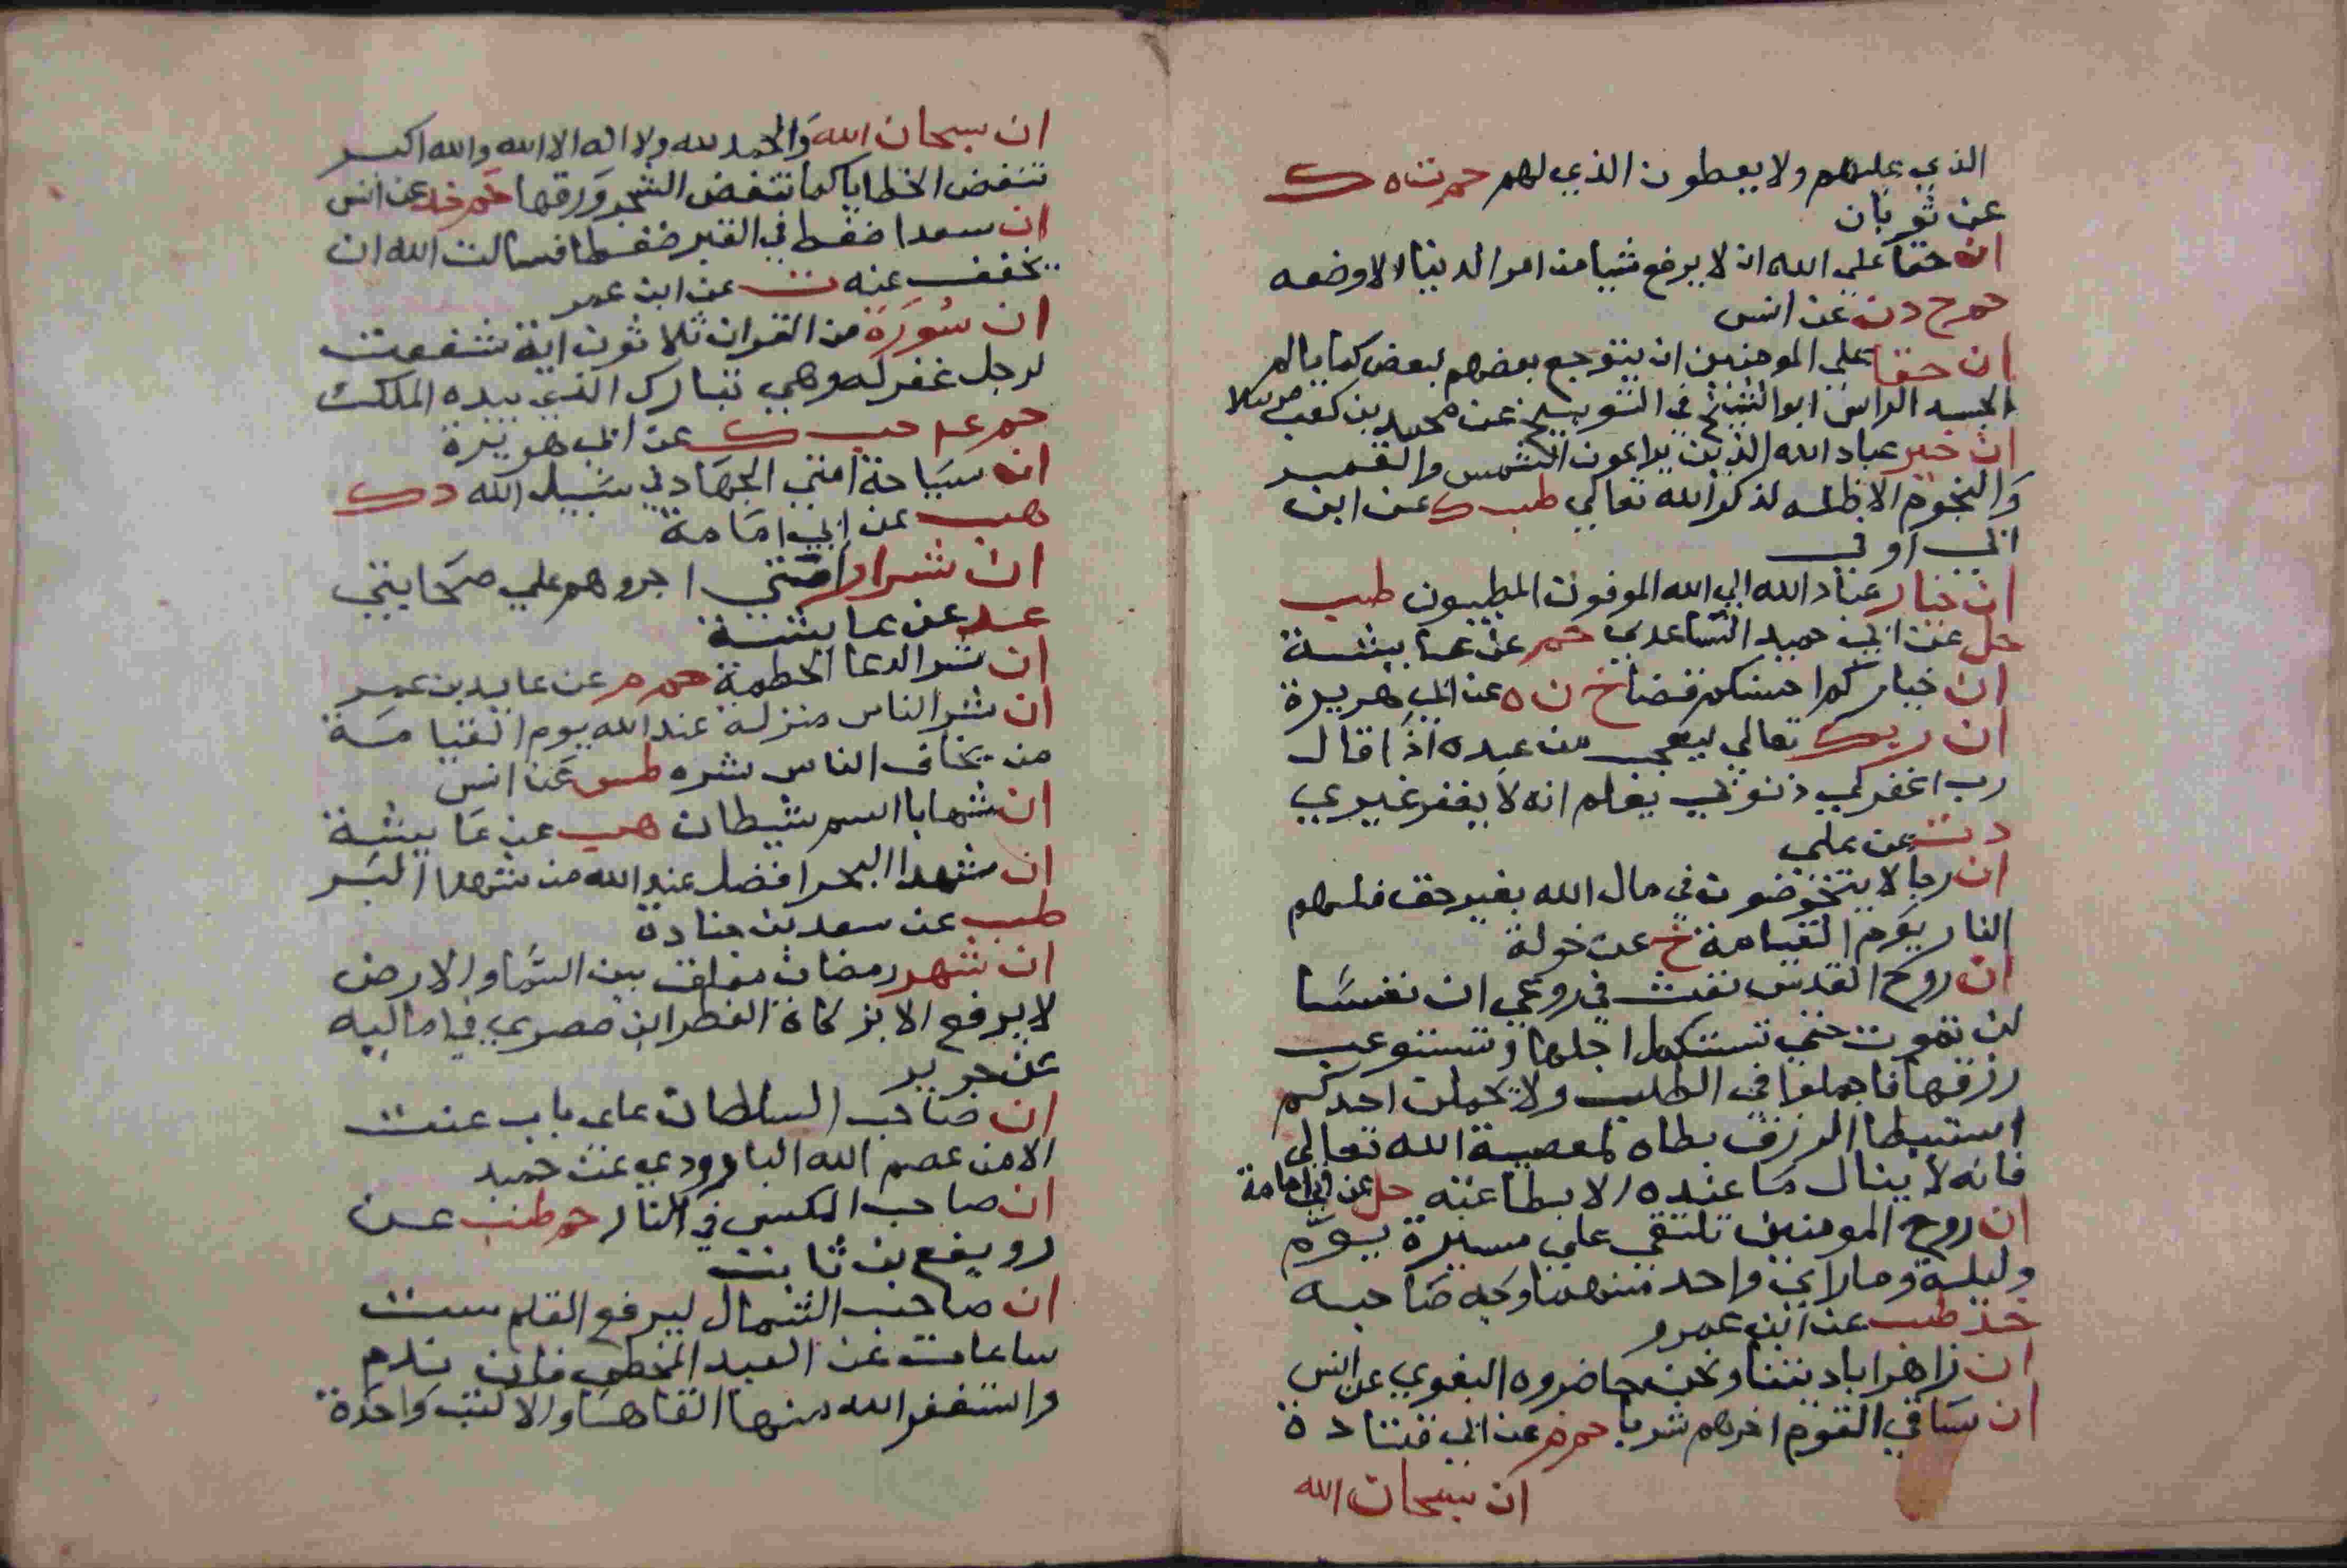 الذي عليهم ولا يعطون الذي لهم حم ت ه ك
عن ثوبان
ان حقا علي الله ان لا يرفع شيا من امر الدنيا الا وضعه
حم خ د ن عن انس
ان حقا علي المومنين ان يتوجع بعضهم لبعض كما يالم
الجسد الراس ابو الشيخ في التوبيخ عن محمد بن كعب مرسلا
ان خير عباد الله الذين يراعون الشمس والقمر
والنجوم والاظله لذكر الله تعالي طب ك عن ابن
ابي اوفي
ان خيار عباد الله الي الله الموفون المطيبون طب
حل عن ابي حميد الساعدي حم عن عايشة
ان خياركم احسنكم قضا خ ن ه عن ابي هريرة
ان ربك تعالي ليعجب من عبده اذا قال
رب اغفر لي ذنوبي يعلم انه لا يغفر غيري
د ت عن علي
ان رجالا يتخوضون في مال الله بغير حق فلهم
النار يوم القيامة خ عن خولة
ان روح القدس نفث في روعي ان نفسا
لن تموت حتي تستكمل اجلها وتستوعب
رزقها فاجملوا في الطلب ولا يحملن احدكم
استبطا الرزق بطاه لمعصية الله تعالي
فانه لا ينال ما عنده الا بطاعته حل عن ابي امامة
ان روح المومنين تلتقي علي مسيرة يوم
وليلة وما راي واحد منهما وجه صاحبه
خد طب عن ابن عمرو
ان زاهرا باديتنا ونحن حاضروه البغوي عن انس
ان ساقي القوم اخرهم شربا حم م عن ابي قتادة
ان سبحان الله
ان سبحان الله والحمد لله ولا اله الا الله والله اكبر
تنفض الخطايا كما تنفض الشجر ورقها حم خد عن انس
ان سعدا ضغط في القبر ضغطا فسالت الله ان
يخفف عنه ت عن ابن عمر
ان سورة من القران ثلاثون اية شفعت
لرجل غفر له وهي تبارك الذي بيده الملك
حم عد حب ك عن ابي هويرة
ان سياحة امتي الجهاد في سبيل الله د ك
هب عن ابي امامة
ان شرار امتي اجروهم علي صحابتي
عد عن عايشة
ان شر الدعا الحطمة حم م عن عايد بن عمر
ان شر الناس منزلة عند الله يوم القيامة
من يخاف الناس شره طس عن انس
ان شهابا اسم شيطان هب عن عايشة
ان شهدا البحر افضل عند الله من شهدا البر
طب عن سعد بن جنادة
ان شهر رمضان معلق بين السما والارض
لا يرفع الا بزكاة الفطر ابن صصري في اماليه
عن جرير
ان صاحب السلطان علي باب عنت
الا من عصم الله الباوردي عن حميد
ان صاحب المكس في النار حم طب عن
رويفع بن ثابت
ان صاحب الشمال ليرفع القلم ست
ساعات عن العبد المخطي فان ندم
واستغفر الله منها القاها والا كتب واحدة